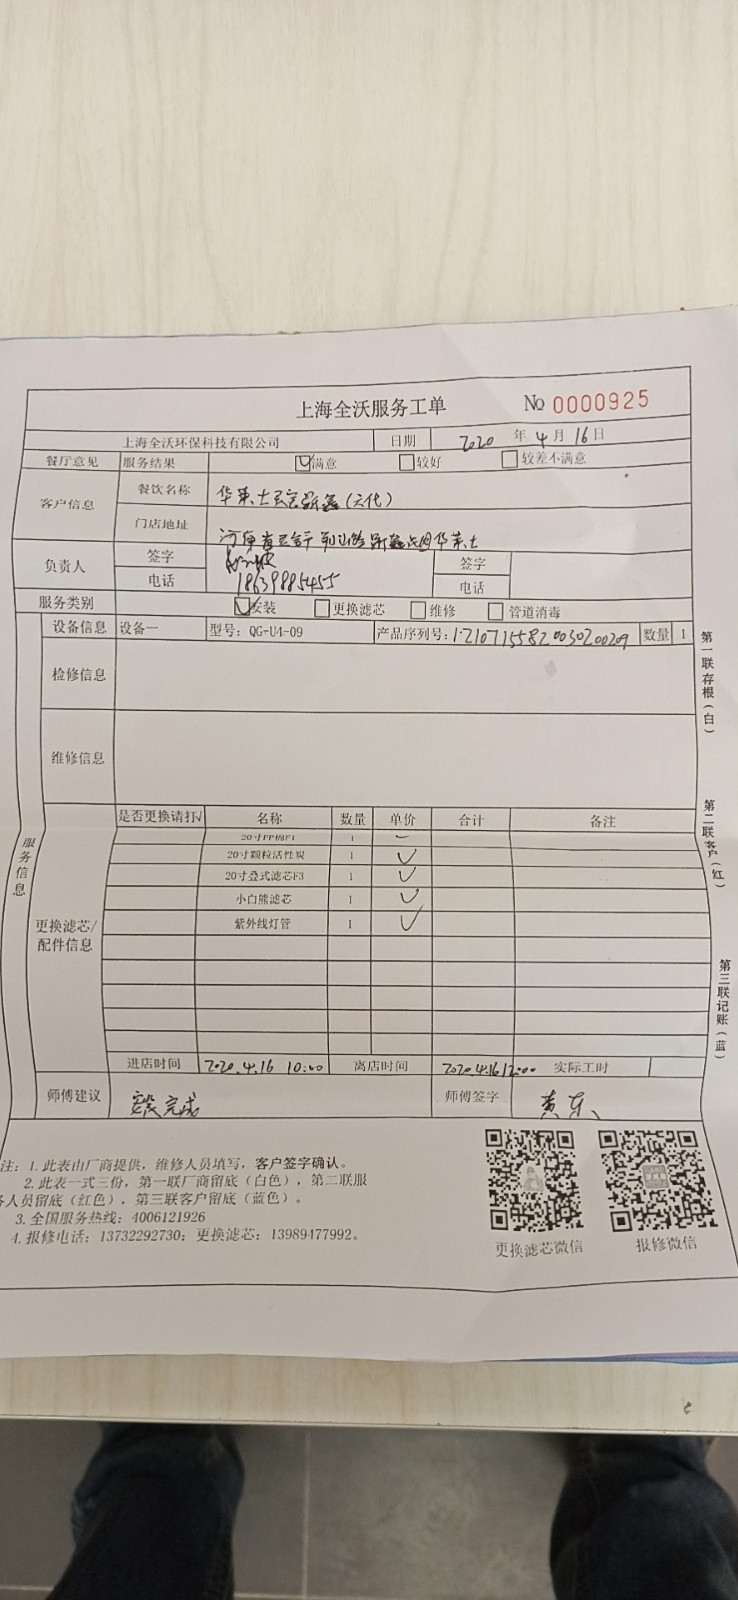 上海全沃服务工单 No 0000925
上海全沃环保科技有限公司 日期 2020 年 4 月 16 日
餐厅意见 服务结果 满意 较好 较差不满意
客户信息 餐饮名称 华莱士
门店地址 河南省
负责人 签字 签字
电话 18639885455 电话
服务类别 安装 更换滤芯 维修 管道消毒
设备信息 设备一 型号: QG-U4-09 产品序列号: 数量 1
检修信息
维修信息
服务信息
更换滤芯/配件信息
是否更换请打√ 名称 数量 单价 合计 备注
20寸PP棉F1 1
20寸颗粒活性炭 1 √
20寸叠式滤芯F3 1 √
小白熊滤芯 1 √
紫外线灯管 1 √
进店时间 2020.4.16 10:00 离店时间 2020.4.16 12:00 实际工时
师傅建议 安装完成 师傅签字 黄东
注: 1. 此表由厂商提供, 维修人员填写, 客户签字确认。
2. 此表一式三份, 第一联厂商留底 (白色), 第二联服
务人员留底 (红色), 第三联客户留底 (蓝色)。
3. 全国服务热线: 4006121926
4. 报修电话: 13732292730; 更换滤芯: 13989477992。
更换滤芯微信 报修微信
第一联存根(白)
第二联客户(红)
第三联记账(蓝)